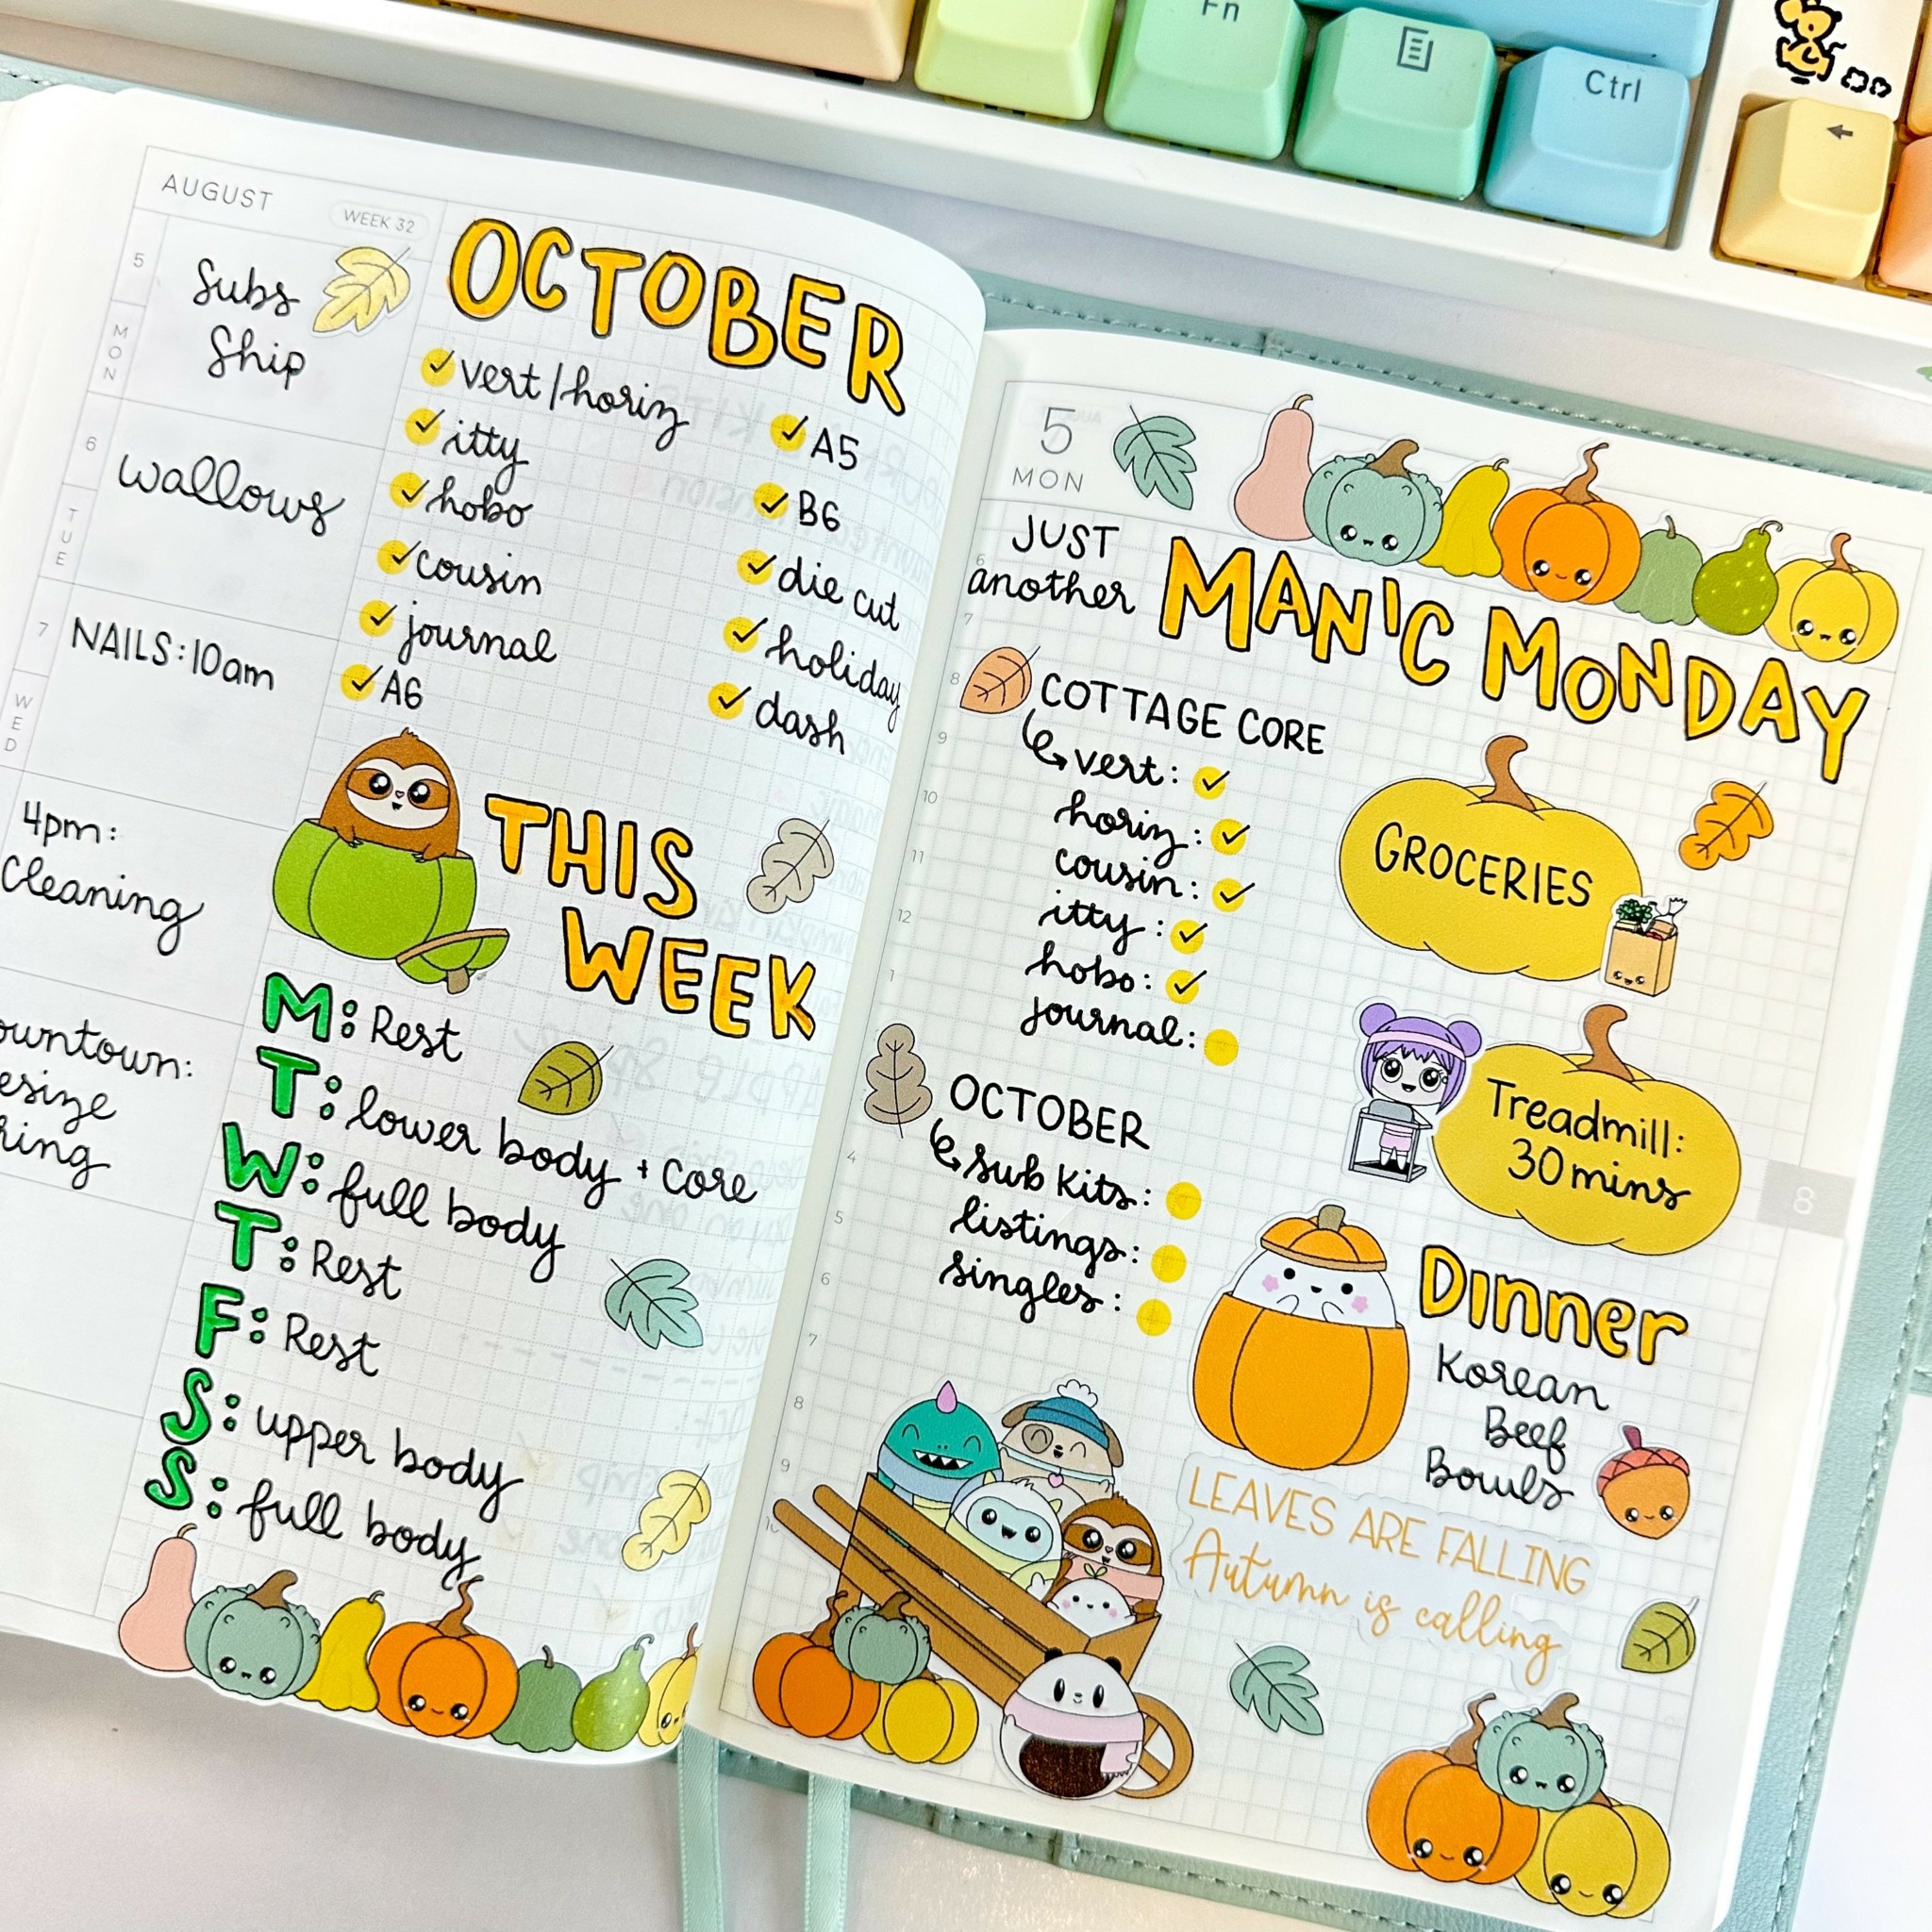 Fn
Ctrl
AUGUST
WEEK 32
5
MON
Subs
Ship
6
TUE
wallows
7
WED
NAILS: 10am
4pm:
Cleaning
OCTOBER
vert/horiz
itty
hobo
cousin
journal
A6
A5
B6
die cut
holiday
dash
THIS
WEEK
M: Rest
T: lower body + core
W: full body
T: Rest
F: Rest
S: upper body
S: full body
5
MON
JUST
another
MANIC MONDAY
6
7
8
9
10
11
12
1
4
5
6
7
8
9
10
COTTAGE CORE
vert:
horiz:
cousin:
itty:
hobo:
journal:
OCTOBER
sub kits:
listings:
singles:
GROCERIES
Treadmill:
30 mins
8
Dinner
Korean
Beef
Bowls
LEAVES ARE FALLING
Autumn is calling